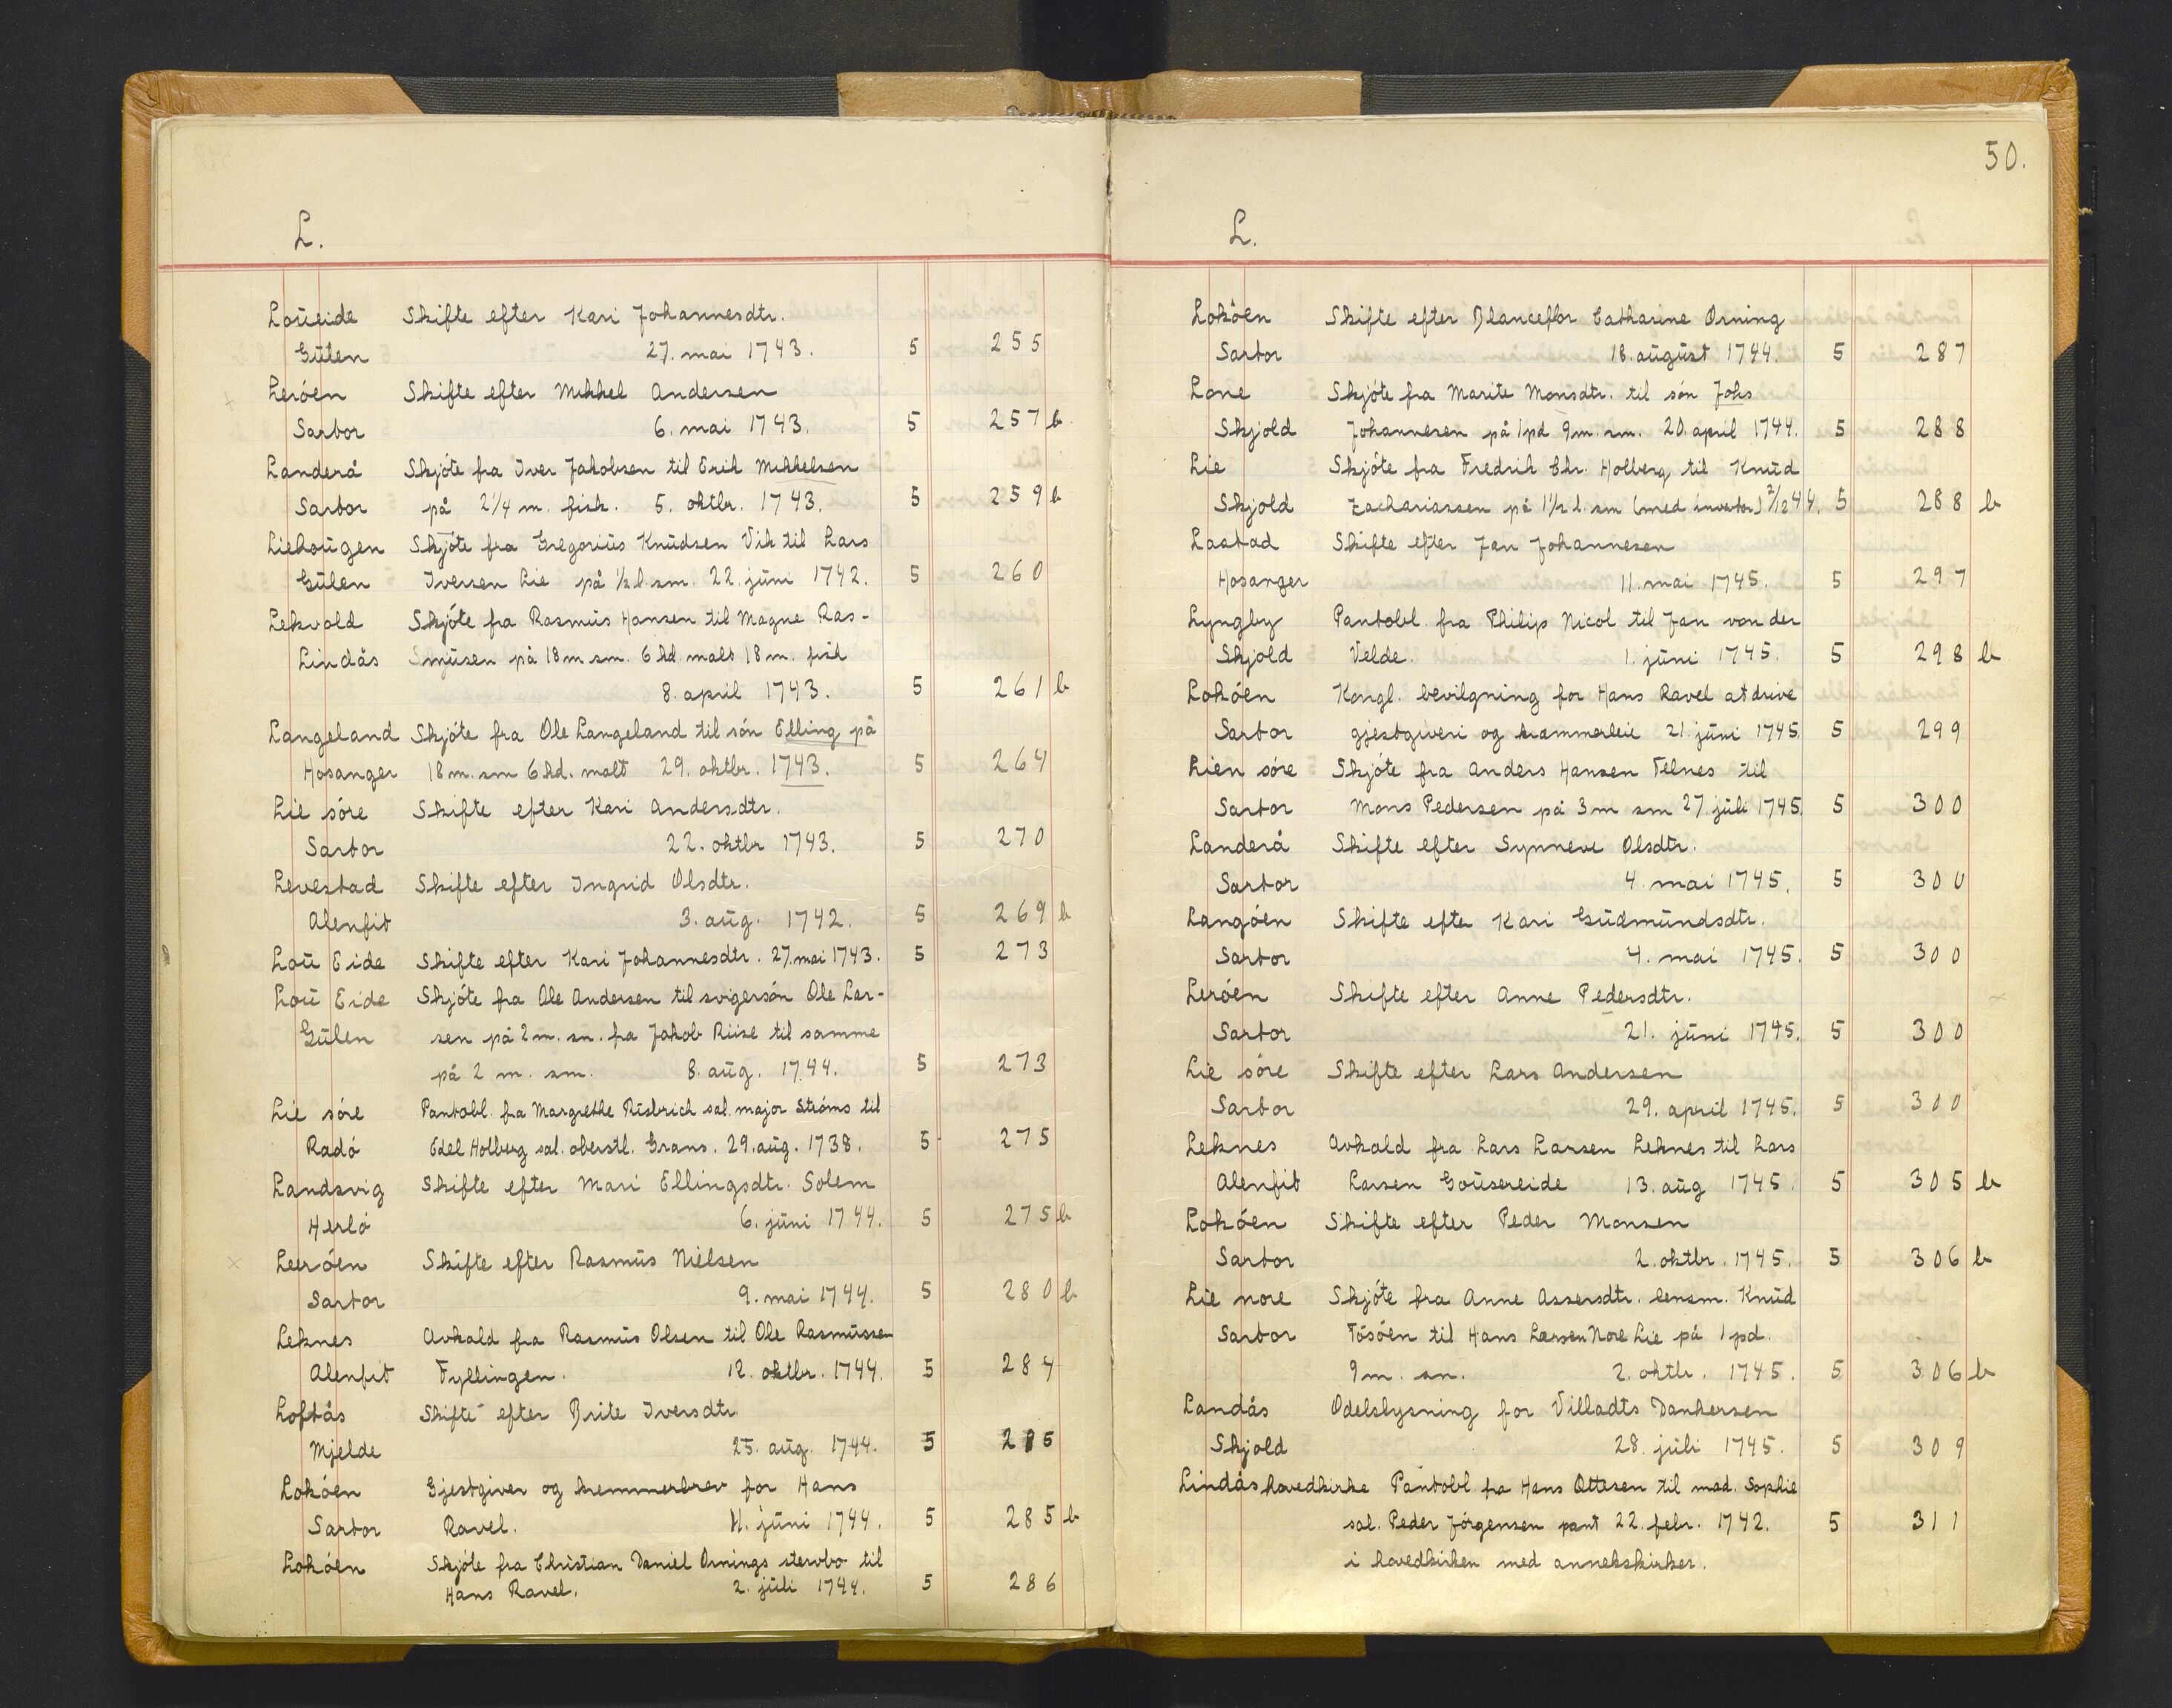 L.
Loüeide Skifte efter Kari Johannesdtr.
Gülen 27. mai 1743. 5 255
Leröen Skifte efter Mikkel Andersen
Sartor 6. mai 1743. 5 257 b
Landerå Skjöte fra Iver Jakobsen til Erik Mikkelsen
Sartor på 2 1/4 m. fisk. 5. oktbr. 1743. 5 259 b
Liehougen Skjöte fra Gregoriüs Knüdsen Vik til Lars
Gülen Iversen Lie på 1/2 l. sm. 22. jüni 1742. 5 260
Lekvold Skjöte fra Rasmüs Hansen til Magne Ras-
Lindås müsen på 18 m sm. 6 kd. malt 18 m. fisk
8. april 1743. 5 261 b
Langeland Skjöte fra Ole Langeland til sön Elling på
Hosanger 18 m. sm 6 kd. malt 29. oktbr. 1743. 5 264
Lie söre Skifte efter Kari Andersdtr.
Sartor 22. oktbr 1743. 5 270
Levestad Skifte efter Ingrid Olsdtr.
Alenfit 3. aüg. 1742. 5 269 b
Loü Eide Skifte efter Kari Johannesdtr. 27. mai 1743. 5 273
Loü Eide Skjöte fra Ole Andersen til svigersön Ole Lar-
Gülen sen på 2 m. sm. fra Jakob Riise til samme
på 2 m. sm. 8. aüg. 1744. 5 273
Lie söre Pantobl. fra Margrethe Rüsbrich sal. major Ströms til
Radö Edel Holberg sal. oberstl. Grans. 29. aüg. 1738. 5 275
Landsvig Skifte efter Mari Ellingsdtr. Solem
Herlö 6. jüni 1744. 5 275 b
Leeröen Skifte efter Rasmüs Nielsen
Sartor 9. mai 1744. 5 280 b
Leknes Avkald fra Rasmüs Olsen til Ole Rasmüssen
Alenfit Fyllingen. 12. oktbr. 1744. 5 284
Loftås Skifte efter Brite Iversdtr
Mjelde 25. aüg. 1744. 5 285
Loköen Gjestgiver og kremmerbrev for Hans
Sartor Ravel. 11. jüni 1744. 5 285 b
Loköen Skjöte fra Christian Daniel Ornings stervbo til
Hans Ravel. 2. jüli 1744. 5 286
50.
L.
Loköen Skifte efter Blanceflor Catharine Orning
Sartor 18. aügüst 1744. 5 287
Lone Skjöte fra Marite Monsdtr. til sön Johs
Skjold Johannesen på 1 pd 9 m. sm. 20. april 1744. 5 288
Lie Skjöte fra Fredrik Chr. Holberg til Knüd
Skjold Zachariassen på 1 1/2 l. sm (med invertor) 2/12 44. 5 288 b
Lastad Skifte efter Jan Johannesen
Hosanger 11. mai 1745. 5 297
Lyngby Pantobl. fra Philip Nicol til Jan von der
Skjold Velde. 1. jüni 1745. 5 298 b
Loköen Kongl. bevilgning for Hans Ravel at drive
Sartor gjestgiveri og krammerleie 21. jüni 1745. 5 299
Lien söre Skjöte fra Anders Hansen Telnes til
Sartor Mons Pedersen på 3 m sm 27. jüli 1745. 5 300
Landerå Skifte efter Synneve Olsdtr.
Sartor 4. mai 1745. 5 300
Langöen Skifte efter Kari Güdmündsdtr.
Sartor 4. mai 1745. 5 300
Leröen Skifte efter Anne Pedersdtr.
Sartor 21. jüni 1745. 5 300
Lie söre Skifte efter Lars Andersen
Sartor 29. april 1745. 5 300
Leknes Avkald fra Lars Larsen Leknes til Lars
Alenfit Larsen Goüsereide 13. aüg 1745. 5 305 b
Loköen Skifte efter Peder Monsen
Sartor 2. oktbr. 1745. 5 306 b
Lie nore Skjöte fra Anne Assersdtr. lensm. Knüd
Sartor Tösöen til Hans Larsen Nore Lie på 1 pd.
9 m. sm. 2. oktbr. 1745. 5 306 b
Landås Odelslysning for Villadts Dankersen
Skjold 28. jüli 1745. 5 309
Lindås hovedkirke Pantobl. fra Hans Ottesen til mad. Sophie
sal. Peder Jörgensen pant 22. febr. 1742. 5 311
i hovedkirken med annekskirker.